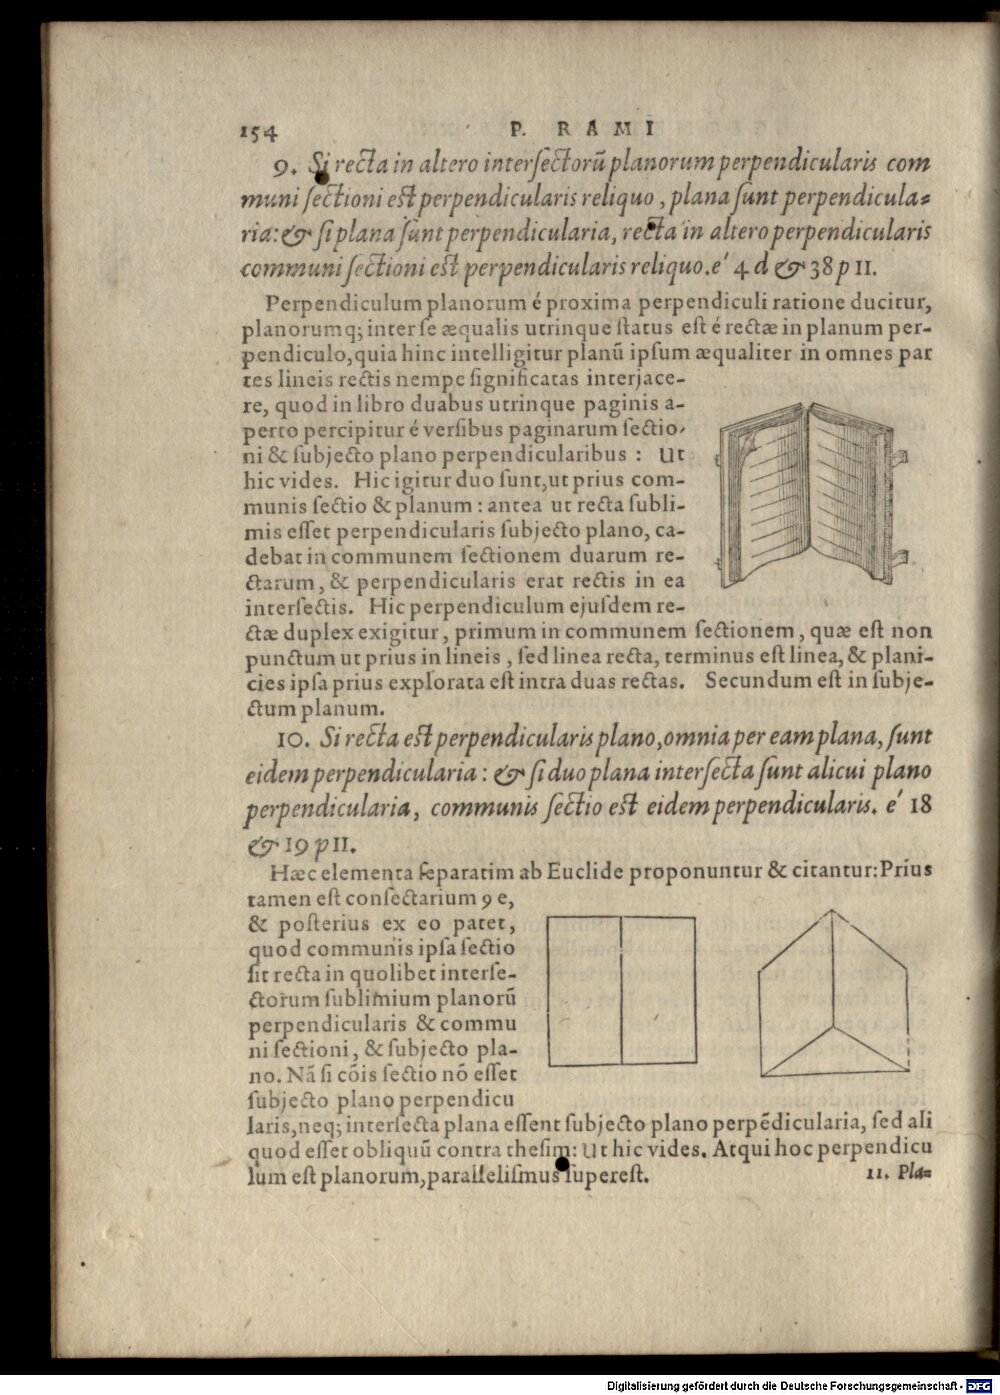 154 P. RAMI
9. Si recta in altero intersectorũ planorum perpendicularis com
muni sectioni est perpendicularis reliquo, plana sunt perpendicula=
ria: & si plana sunt perpendicularia, recta in altero perpendicularis
communi sectioni est perpendicularis reliquo. é 4 d & 38 p 11.
Perpendiculum planorum é proxima perpendiculi ratione ducitur,
planorumq; inter se æqualis utrinque status est é rectæ in planum per-
pendiculo, quia hinc intelligitur planũ ipsum æqualiter in omnes par
tes lineis rectis nempe significatas interjace-
re, quod in libro duabus utrinque paginis a-
perto percipitur é versibus paginarum sectio-
ni & subjecto plano perpendicularibus : Ut
hic vides. Hic igitur duo sunt, ut prius com-
munis sectio & planum : antea ut recta subli-
mis esset perpendicularis subjecto plano, ca-
debat in communem sectionem duarum re-
ctarum, & perpendicularis erat rectis in ea
intersectis. Hic perpendiculum ejusdem re-
ctæ duplex exigitur, primum in communem sectionem, quæ est non
punctum ut prius in lineis, sed linea recta, terminus est linea, & plani-
cies ipsa prius explorata est intra duas rectas. Secundum est in subje-
ctum planum.
10. Si recta est perpendicularis plano, omnia per eam plana, sunt
eidem perpendicularia : & si duo plana intersecta sunt alicui plano
perpendicularia, communis sectio est eidem perpendicularis. é 18
& 19 p 11.
Hæc elementa separatim ab Euclide proponuntur & citantur: Prius
tamen est consectarium 9 e,
& posterius ex eo patet,
quod communis ipsa sectio
sit recta in quolibet interse-
ctorum sublimium planorũ
perpendicularis & commu
ni sectioni, & subjecto pla-
no. Nã si cõis sectio nõ esset
subjecto plano perpendicu
laris, neq; intersecta plana essent subjecto plano perpẽdicularia, sed ali
quod esset obliquũ contra thesim: Ut hic vides. Atqui hoc perpendicu
lum est planorum, parallelismus superest. 11. Pla=
Digitalisierung gefördert durch die Deutsche Forschungsgemeinschaft - DFG